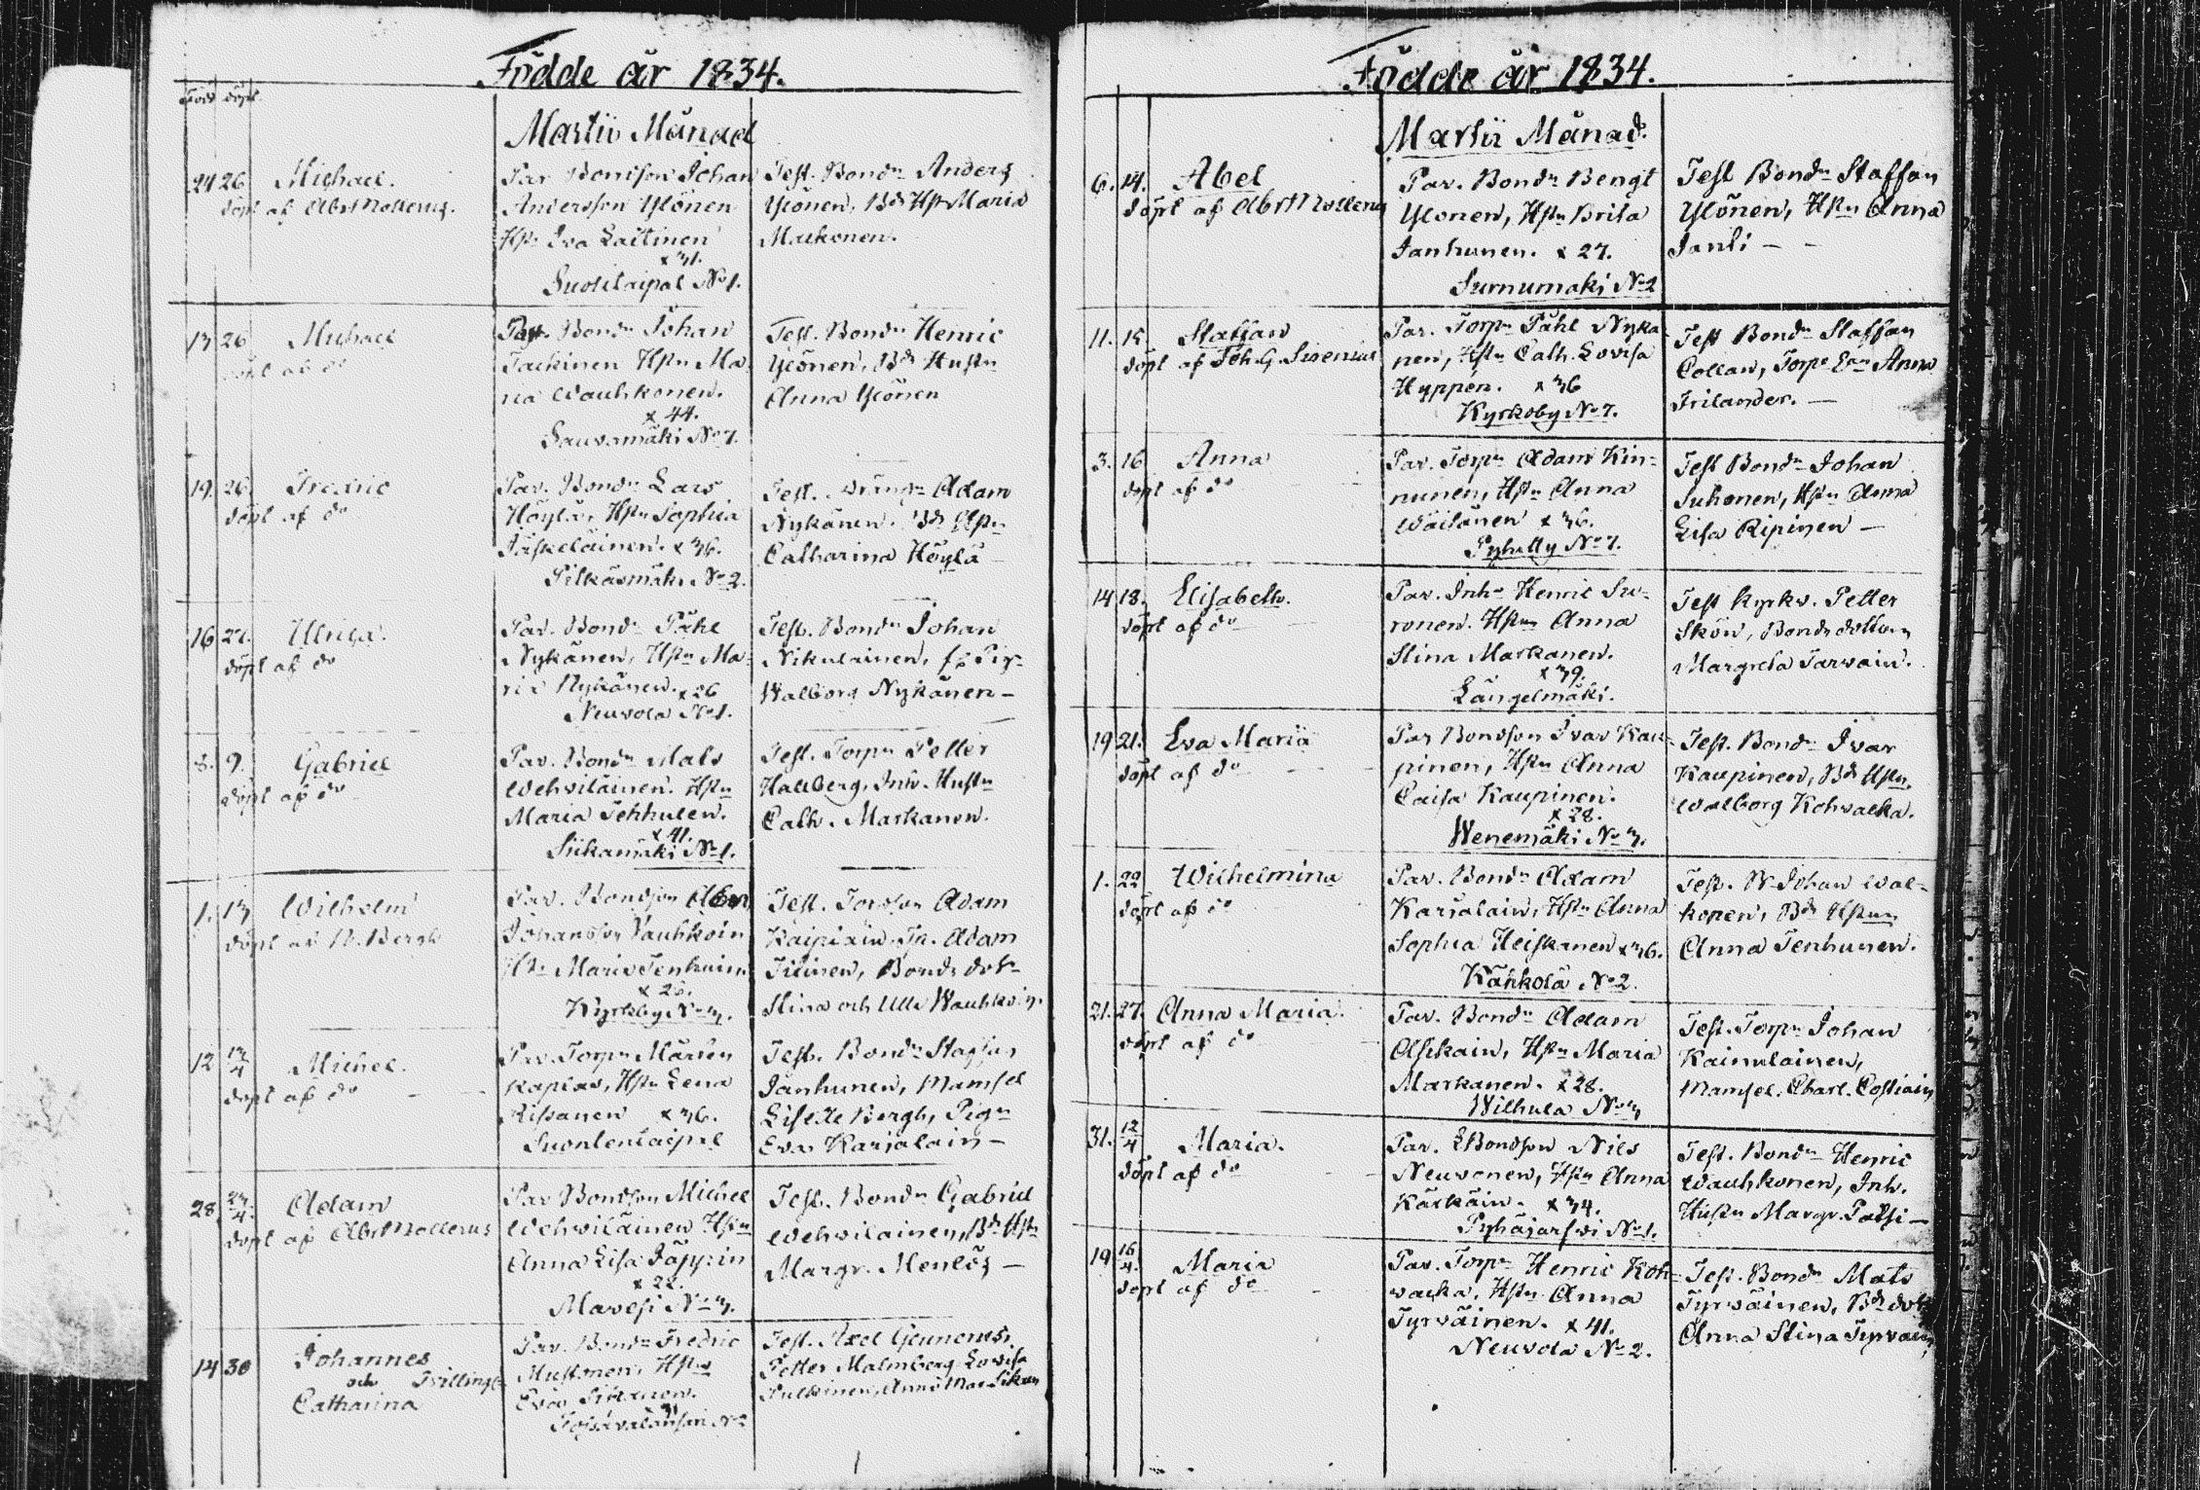 Födde år 1834.
Född döpt
Martii Månad
24 26 Michael.
döpt af Abr Mollerus.
Par Bondson Johan
Andersson Ylönen
Hstr Eva Laitinen
x 31.
Suoletaipal No 1.
Test. Bondn Anders
Ylönen, Bds Hst Maria
Markonen.
13 26 Michael
döpt af do
Par. Bondn Johan
Hstn Ma-
ria Wauhkonen.
x 44.
No 7.
Test. Bondn Henric
Ylönen, Bds Hustn
Anna Ylönen
19. 26. Fredric
döpt af do
Par. Bondn Lars
Höylä, Hstn Sophia
Jäskeläinen. x 36.
Pitkäsmäki No 2.
Test. Drängn Adam
Nykänen. Bds Hstn
Catharina Höylä
16 27. Ulrica.
döpt af do
Par. Bondn Påhl
Nykänen, Hstn Ma-
ria Nykänen. x 26
Neuvola No 1.
Test. Bondn Johan
Nikulainen,
Walborg Nykänen –
8. 9. Gabriel
döpt af do
Par. Bondn Mats
Wehviläinen. Hstn
Maria Tehhulen.
x 41.
Siikamäki No 1.
Test. Torpn Petter
Hallberg, Inh. Hustn
Cath. Markanen.
1. 13 Wilhelm
döpt af N. Bergh
Par. Bondson
Johansson Vauhkoin
Hstn Maria Tenhuin
x 26.
Kyrkby No 3.
Test. Torpson Adam
Kaipiain, Dr. Adam
Tilinen, Bonds dotr
Stina och Ulla Wauhkoin.
12 13/4 Michel.
döpt af do
Par. Torpn Mårten
Kaplas, Hstn Lena
Rissanen x 36.
Suontentaipal
Test. Bondn Staffan
Janhunen, Mamsel
Bergh, Pign
Eva Karialain –
28. 23/4 Adam
döpt af Abr Mollerus
Par Bondson Michel
Wehviläinen Hstn
Anna Lisa Jäppin
x 22.
No 3.
Test. Bondn Gabriel
Wehvilainen, Bds Hstn
Margr. –
14 30 Johannes
och Tvillingar
Catharina
Par. Bondn Fredric
Mustonen, Hstn
Eva
No 2
Test. Axel
Petter Malmberg Lovisa
Pulkinen, Anna Mar.
Födde år 1834.
Martii Månad.
6. 14. Abel
döpt af Abr Mollerus
Par. Bondn Bengt
Ylonen, Hstn Brita
Janhunen. x 27.
Surnumaki No 2
Test Bondn Staffan
Ylönen, Hstn Anna
Janti – –
11. 15. Staffan
döpt af Joh. G. Sirenius
Par. Torpn Påhl Nyka-
nen, Hstn Cath. Lovisa
Hyppön. x 36
Kyrkoby No 7.
Test Bondn Staffan
Collan, Torpe Enn Anna
Frilander. –
3. 16 Anna
döpt af do
Par. Torpn Adam Kin-
nunen, Hstn Anna
Wäisänen x 36.
Pyhelty No 7.
Test Bondn Johan
Suhonen, Hstn Anna
Lisa Ripinen –
14 18. Elisabeth.
döpt af do
Par. Inhs Henric Su-
ronen. Hstn Anna
Stina Markanen.
x 39.
Längelmäki.
Test Kyrkv. Petter
Skön, Bonds dottern
Margreta Tarvain.
19 21. Eva Maria
döpt af do
Par Bondson Ivar Kau-
pinen, Hstn Anna
Caisa Kaupinen.
x 28.
Wenemäki No 3.
Test. Bondn Ivar
Kaupinen, Bds Hstn
Walborg Kohvakka.
1. 22 Wilhelmina
döpt af do
Par. Bondn Adam
Karialain, Hstn Anna
Sophia Heiskanen x 36.
Kähkölä No 2.
Test. Dr. Johan Wal-
konen, Bds Hstn
Anna Tenhunen.
21. 27. Anna Maria.
döpt af do
Par. Bondn Adam
Asikain, Hstn Maria
Markanen. x 28.
Wilhula No 3
Test. Torpn Johan
Kainulainen,
Mamsel. Charl. Costiain
31. 12/4 Maria.
döpt af do
Par. Bondson Nils
Neuvonen, Hstn Anna
Kärkäin. x 34.
Pyhäjärfwi No 1.
Test. Bondn Henric
Wauhkonen, Inh.
Hustn Margr. Patsi –
19 16/4. Maria
döpt af do
Par. Torpn Henric Koh-
vacka, Hstn Anna
Tyrväinen. x 41.
Neuvola No 2.
Test. Bondn Mats
Tyrväinen, Bds dotr
Anna Stina Tyrväin